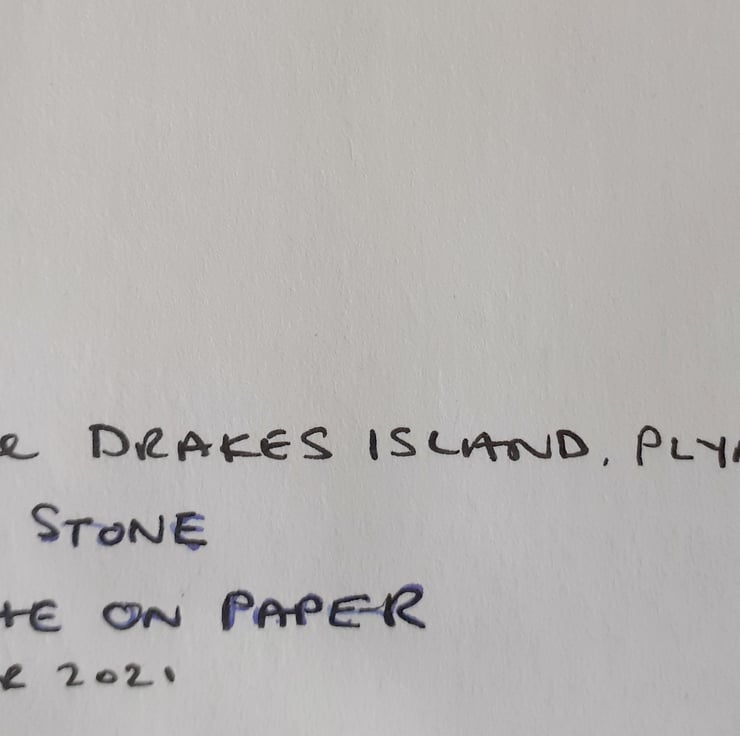 DRAKES ISLAND, PLY
STONE
ON PAPER
2021